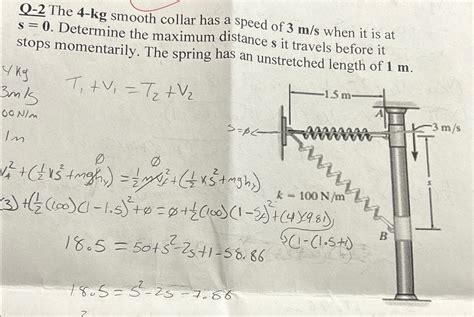 Q-2 The 4-kg smooth collar has a speed of 3 m/s when it is at
s = 0. Determine the maximum distance s it travels before it
stops momentarily. The spring has an unstretched length of 1 m.
4 kg
3m/s
00 N/m
1m
T₁ + V₁ = T₂ + V₂
1.5 m
A
3 m/s
s=ø
s
k = 100 N/m
B
ø ø
+(½ks²+mgh₁) = ½mv₂²+(½ks²+mgh₂)
3)+(½(100)(1-1.5)²+ø=ø+½(100)(1-s)²+(4)(9.81)
(1-(1.5+1)
18.5 = 50+s²-2s+1-58.86
18.5 = s²-2s-7.86